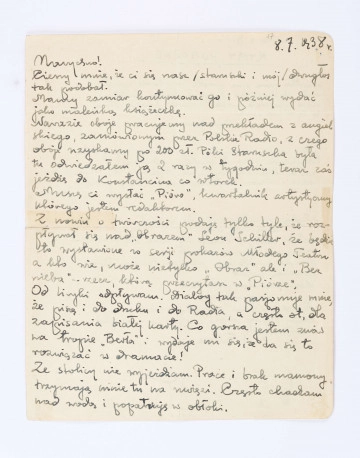 8.7.1938 r.
Marychno!
Cieszy mnie, że ci się nasz /staruszki i mój/ dwugłos
tak podobał.
Mamy zamiar kontynuować go i później wydać
jako maleńką książeczkę.
Narazie oboje pracujemy nad przekładem z angiel-
skiego, zamówionym przez Polskie Radio, z czego
oboje uzyskamy po 200 zł. Póki Staruszka była
tu odwiedzałem ją 2 razy w tygodniu, teraz zaś
jeżdżę do Konstancina co wtorek.
ci wysłać „Pióro”, kwartalnik artystyczny
którego jestem redaktorem.
Z nowin o twórczości podaję tylko tyle, że roz-
pływał się nad „Obrazem” Leon Schiller, że będzie
to wystawione w serii pokazów Młodego Teatru
a kto wie, może niebyłoby „Obraz” ale i „Bez
nieba” - rzecz, którą przeczytasz w „Piórze”.
Od liryki odpływam. Dialog tak pasjonuje mnie,
że piszę i do druku i do Radia, a często ot, dla
zapisania białej karty. Co gorsza jestem znów
na tropie „Berła”: wydaje mi się, że da się to
rozwiązać w dramacie!
Ze stolicy nie wyjeżdżam. Praca i brak mamony
trzymają mnie tu na uwięzi. Często chadzam
nad wodę i popatruję w obłoki.